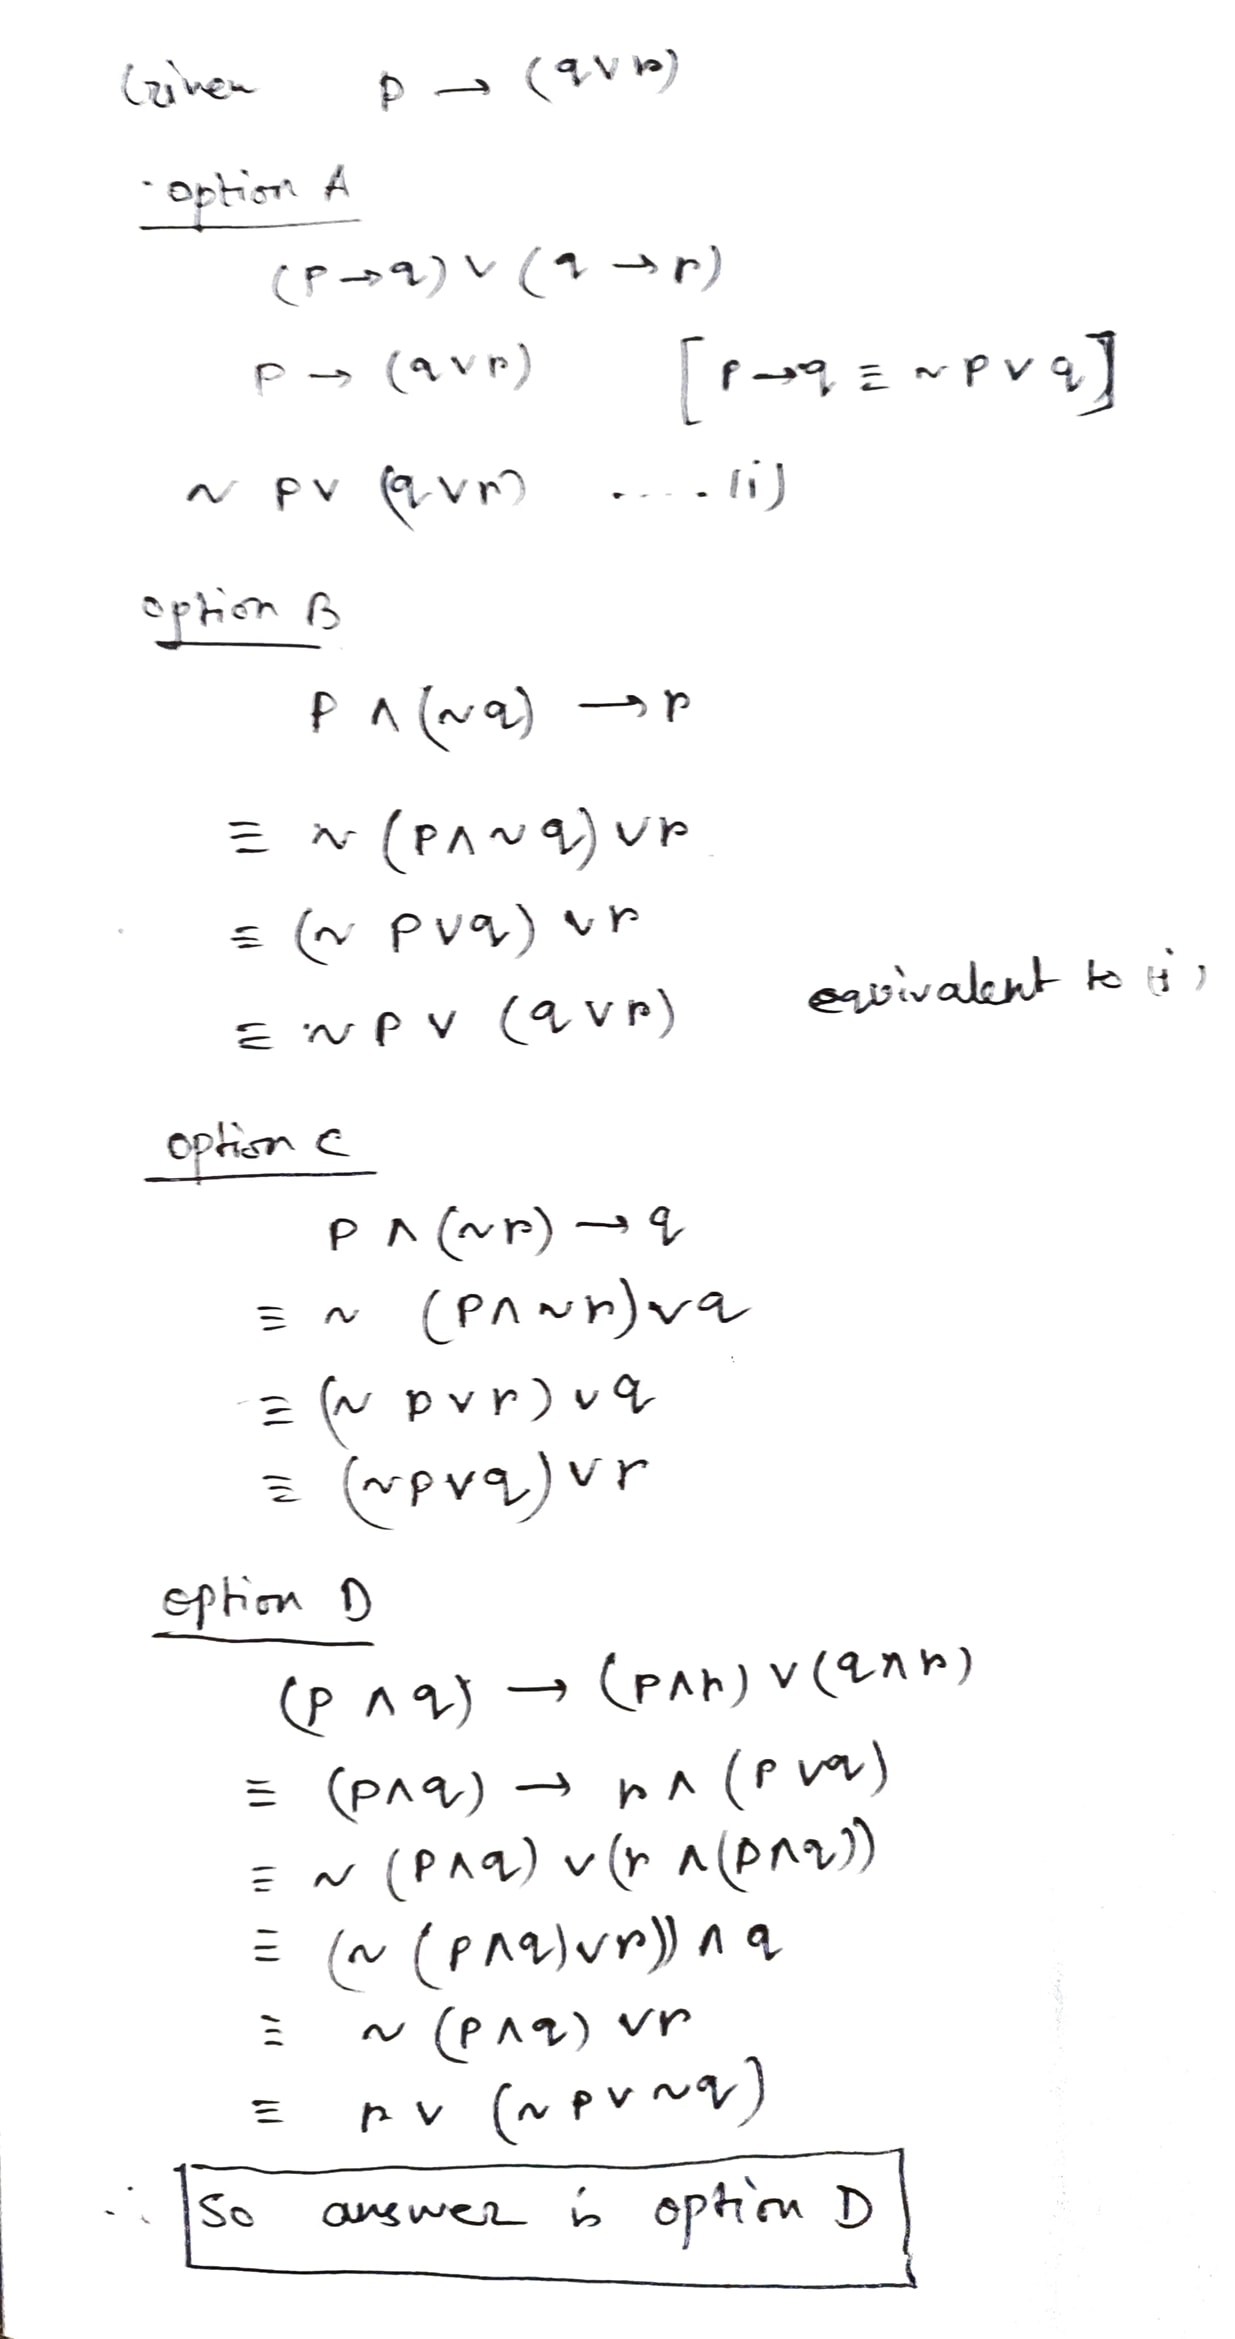 Given p → (q∨r)
option A
(p→q) ∨ (q →r)
p → (q∨r) [p→q ≡ ~p∨q]
~ p∨ (q∨r) ..... (i)
option B
p ∧ (~q) → r
≡ ~ (p∧~q) ∨r
≡ (~ p∨q) ∨r
≡ ~p ∨ (q∨r) equivalent to (i)
option C
p ∧ (~r) → q
≡ ~ (p∧~r)∨q
≡ (~ p∨r) ∨q
≡ (~p∨q) ∨r
option D
(p ∧q) → (p∧r) ∨ (q∧r)
≡ (p∧q) → r ∧ (p ∨q)
≡ ~ (p∧q) ∨ (r ∧(p∧q))
≡ (~ (p∧q)∨r)) ∧ q
≡ ~ (p∧q) ∨r
≡ r ∨ (~p∨~q)
∴ So answer is option D